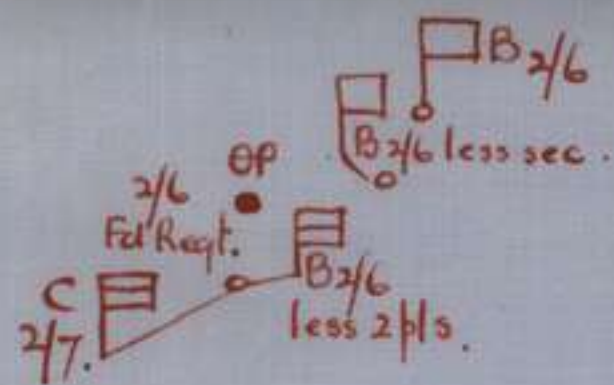 B 2/6
B 2/6 less sec.
OP
2/6
Fd Regt.
B 2/6
less 2 pls.
C
2/7.